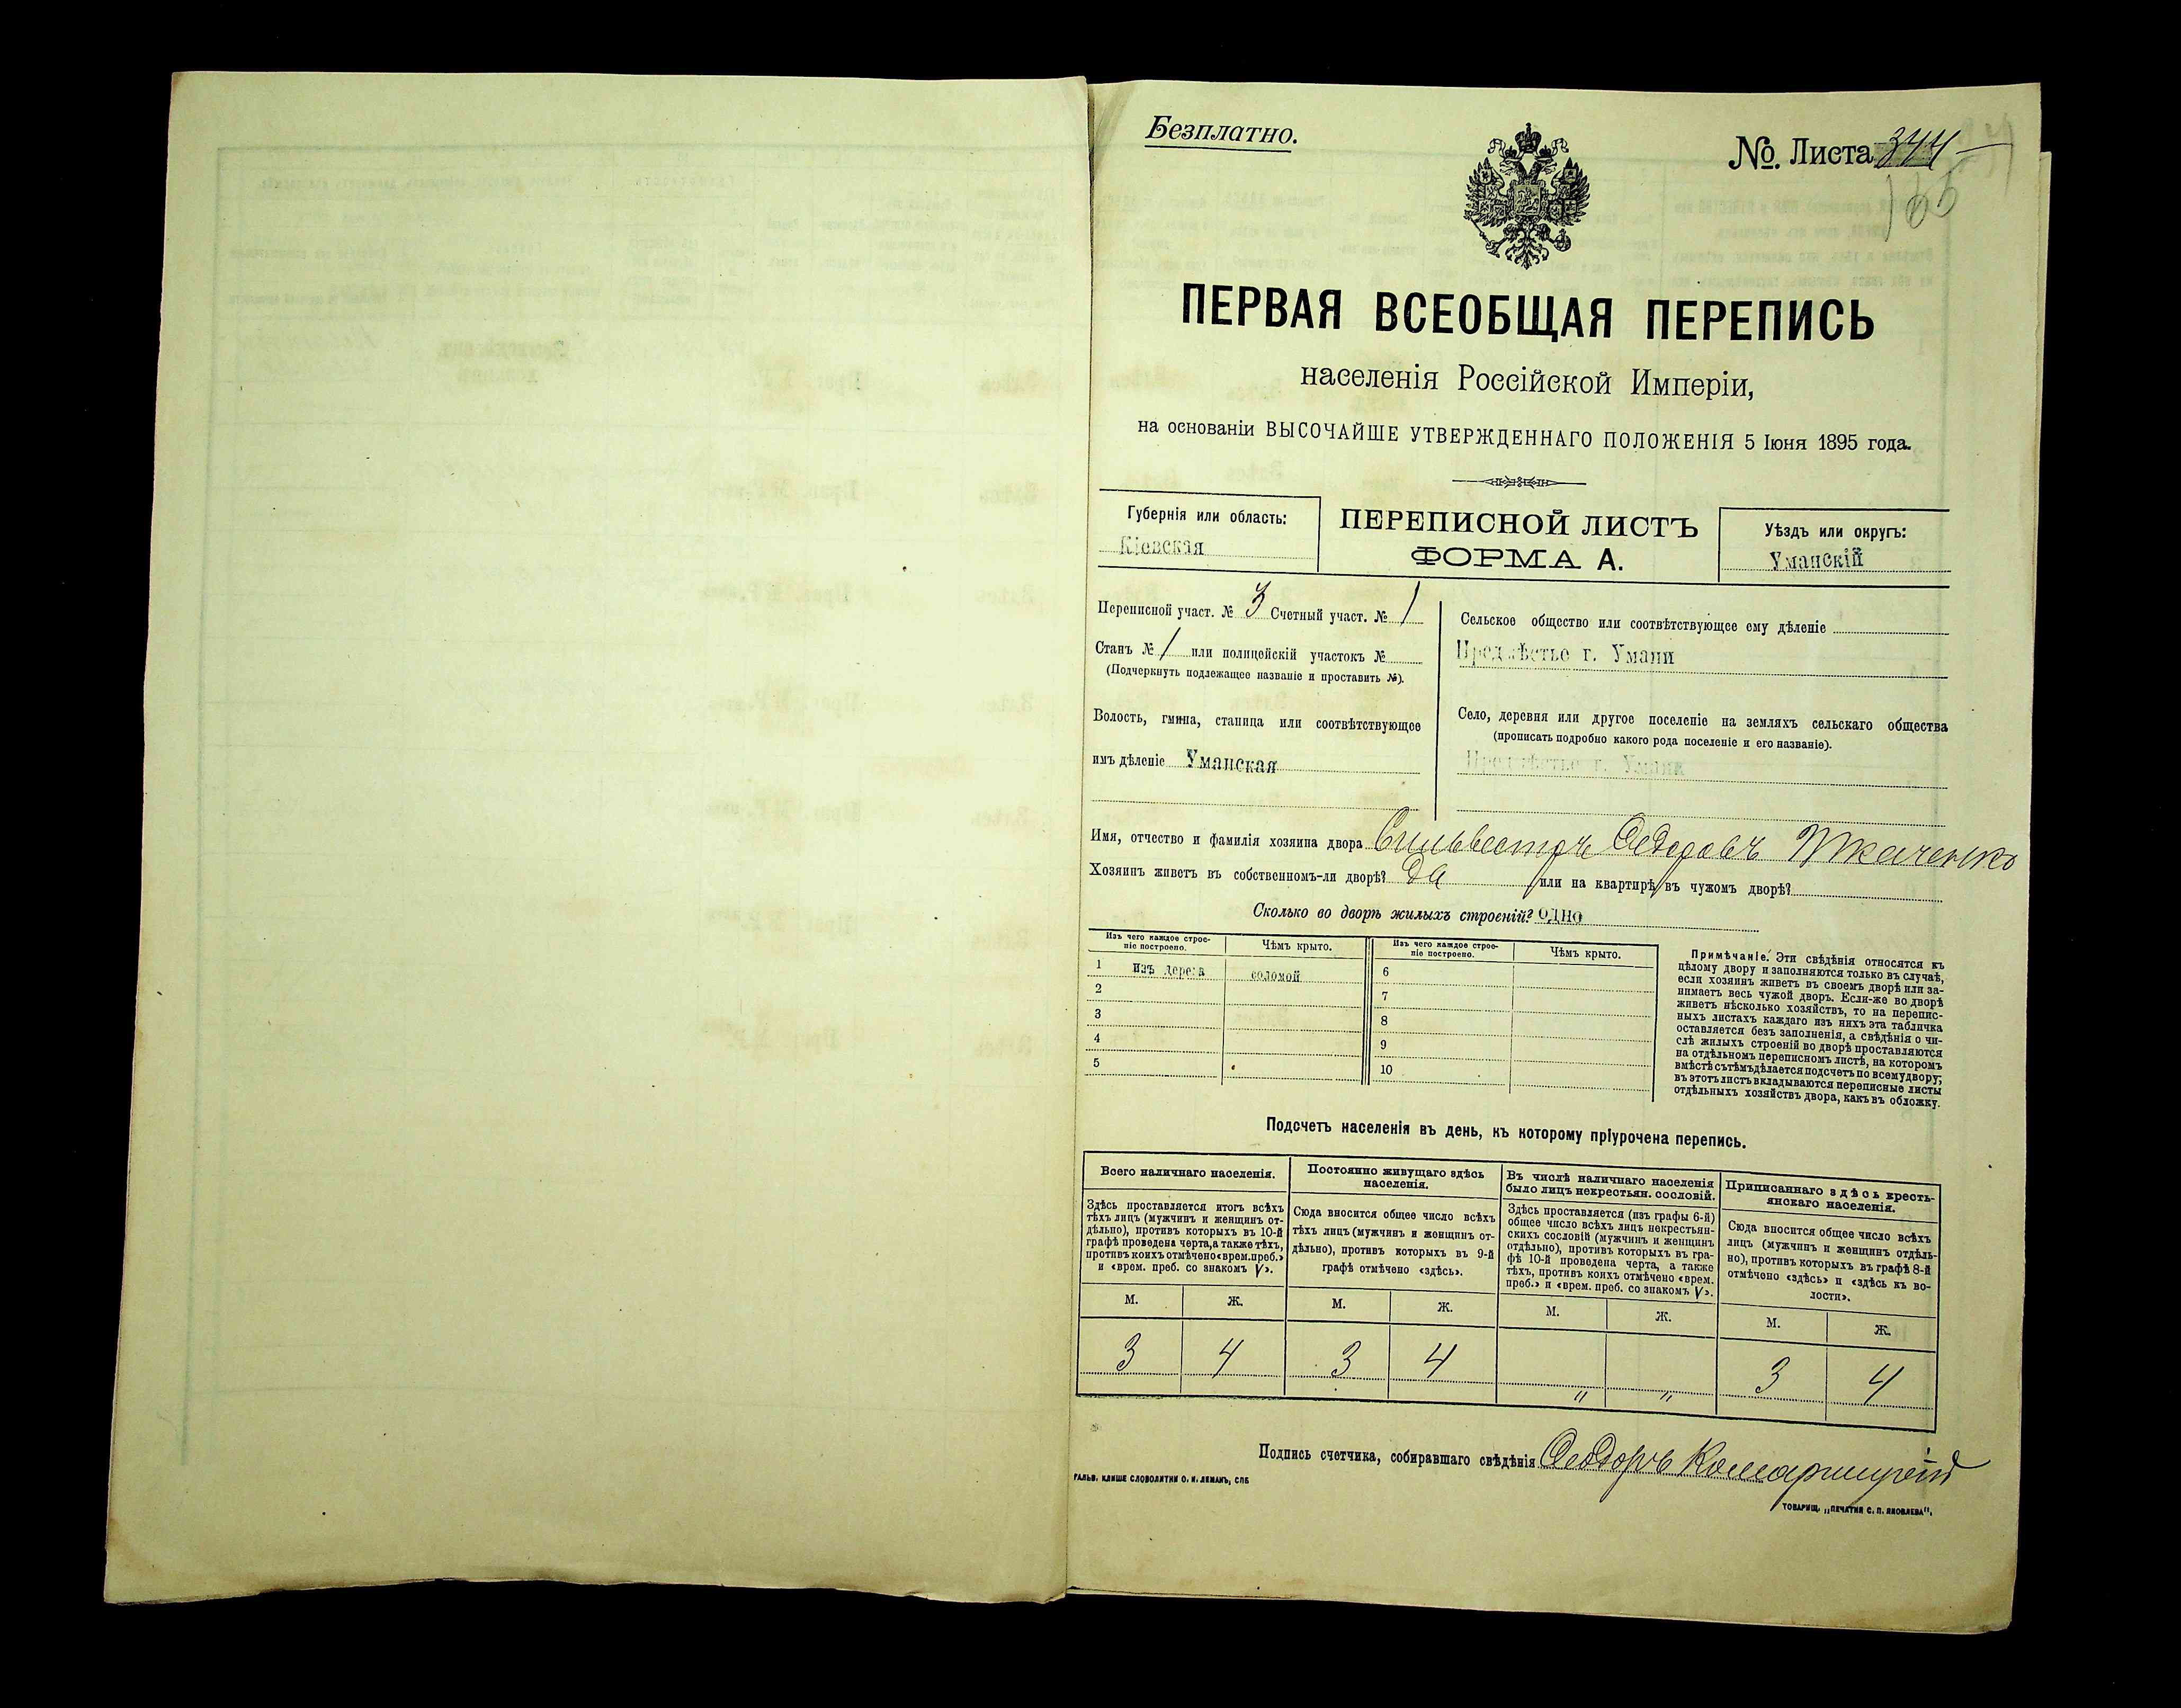 Безплатно.
№. Листа 344
ПЕРВАЯ ВСЕОБЩАЯ ПЕРЕПИСЬ
населенія Россійской Имперіи,
на основаніи ВЫСОЧАЙШЕ УТВЕРЖДЕННАГО ПОЛОЖЕНІЯ 5 Іюня 1895 года.
Губернія или область:
Кіевская
ПЕРЕПИСНОЙ ЛИСТЪ
ФОРМА А.
Уѣздъ или округъ:
Уманскій
Переписной участ. № 3 Счетный участ. № 1
Станъ № 1 или полицейскій участокъ №
(Подчеркнуть подлежащее названіе и проставить №).
Волость, гмина, станица или соотвѣтствующее
имъ дѣленіе Уманская
Сельское общество или соотвѣтствующее ему дѣленіе
Предмѣстье г. Умани
Село, деревня или другое поселеніе на земляхъ сельскаго общества
(прописать подробно какого рода поселеніе и его названіе).
Предмѣстье г. Умани
Имя, отчество и фамилія хозяина двора Сильвестръ Ѳедоровъ Ткаченко
Хозяинъ живетъ въ собственномъ-ли дворѣ? Да или на квартирѣ въ чужомъ дворѣ?
Сколько во дворѣ жилыхъ строеній? одно
Изъ чего каждое строе-
ніе построено.
Чѣмъ крыто.
Изъ чего каждое строе-
ніе построено.
Чѣмъ крыто.
1 изъ дерева соломой 6
2 7
3 8
4 9
5 10
Примѣчаніе. Эти свѣдѣнія относятся къ
цѣлому двору и заполняются только въ случаѣ,
если хозяинъ живетъ въ своемъ дворѣ или за-
нимаетъ весь чужой дворъ. Если-же во дворѣ
живетъ нѣсколько хозяйствъ, то на перепис-
ныхъ листахъ каждаго изъ нихъ эта табличка
оставляется безъ заполненія, а свѣдѣнія о чи-
слѣ жилыхъ строеній во дворѣ проставляются
на отдѣльномъ переписномъ листѣ, на которомъ
вмѣстѣ съ тѣмъ дѣлается подсчетъ по всему двору;
въ этотъ листъ вкладываются переписные листы
отдѣльныхъ хозяйствъ двора, какъ въ обложку.
Подсчетъ населенія въ день, къ которому пріурочена перепись.
Всего наличнаго населенія.
Здѣсь проставляется итогъ всѣхъ
тѣхъ лицъ (мужчинъ и женщинъ от-
дѣльно), противъ которыхъ въ 10-й
графѣ проведена черта, а также тѣхъ,
противъ коихъ отмѣчено «врем. преб.»
и «врем. преб. со знакомъ V».
М. Ж.
3 4
Постоянно живущаго здѣсь
населенія.
Сюда вносится общее число всѣхъ
тѣхъ лицъ (мужчинъ и женщинъ от-
дѣльно), противъ которыхъ въ 9-й
графѣ отмѣчено «здѣсь».
М. Ж.
3 4
Въ числѣ наличнаго населенія
было лицъ некрестьян. сословій.
Здѣсь проставляется (изъ графы 6-й)
общее число всѣхъ лицъ некрестьян-
скихъ сословій (мужчинъ и женщинъ
отдѣльно), противъ которыхъ въ гра-
фѣ 10-й проведена черта, а также
тѣхъ, противъ коихъ отмѣчено «врем.
преб.» и «врем. преб. со знакомъ V».
М. Ж.
" "
Приписаннаго здѣсь кресть-
янскаго населенія.
Сюда вносится общее число всѣхъ
лицъ (мужчинъ и женщинъ отдѣль-
но), противъ которыхъ въ графѣ 8-й
отмѣчено «здѣсь» и «здѣсь къ во-
лости».
М. Ж.
3 4
Подпись счетчика, собиравшаго свѣдѣнія Ѳеодоръ Комарницкій
ГАЛЬВ. КЛИШЕ СЛОВОЛИТНИ О. И. ЛЕМАНЪ, СПБ
ТОВАРИЩ. „ПЕЧАТНЯ С. П. ЯКОВЛЕВА".